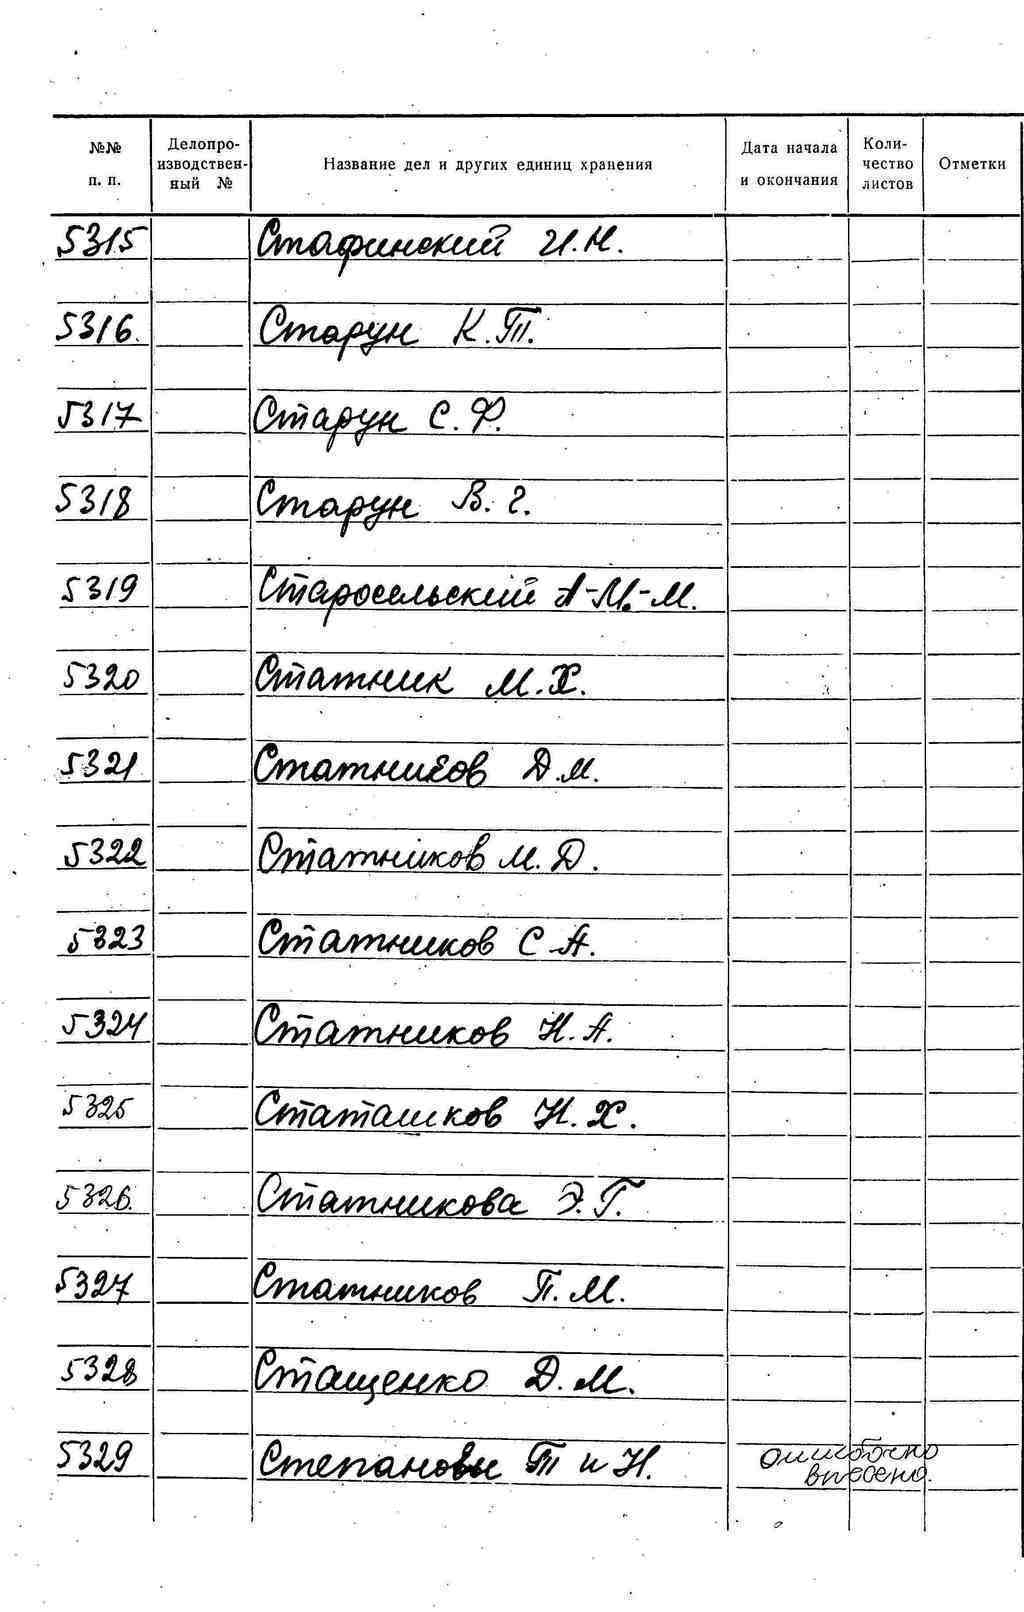 №№ п. п.
Делопроизводственный №
Название дел и других единиц хранения
Дата начала и окончания
Количество листов
Отметки
5315 Стафинский И.Н.
5316. Старун К.Т.
5317 Старун С.Ф.
5318 Старун В.Г.
5319 Старосельский А-М.-М.
5320 Статник М.Х.
5321 Статников Д.М.
5322 Статников М.Д.
5323 Статников С.А.
5324 Статников Н.А.
5325 Статашков Н.Х.
5326. Статникова Э.Г.
5327 Статников П.М.
5328 Стащенко Д.М.
5329 Степановы Т и Н. ошибочно
внесено.